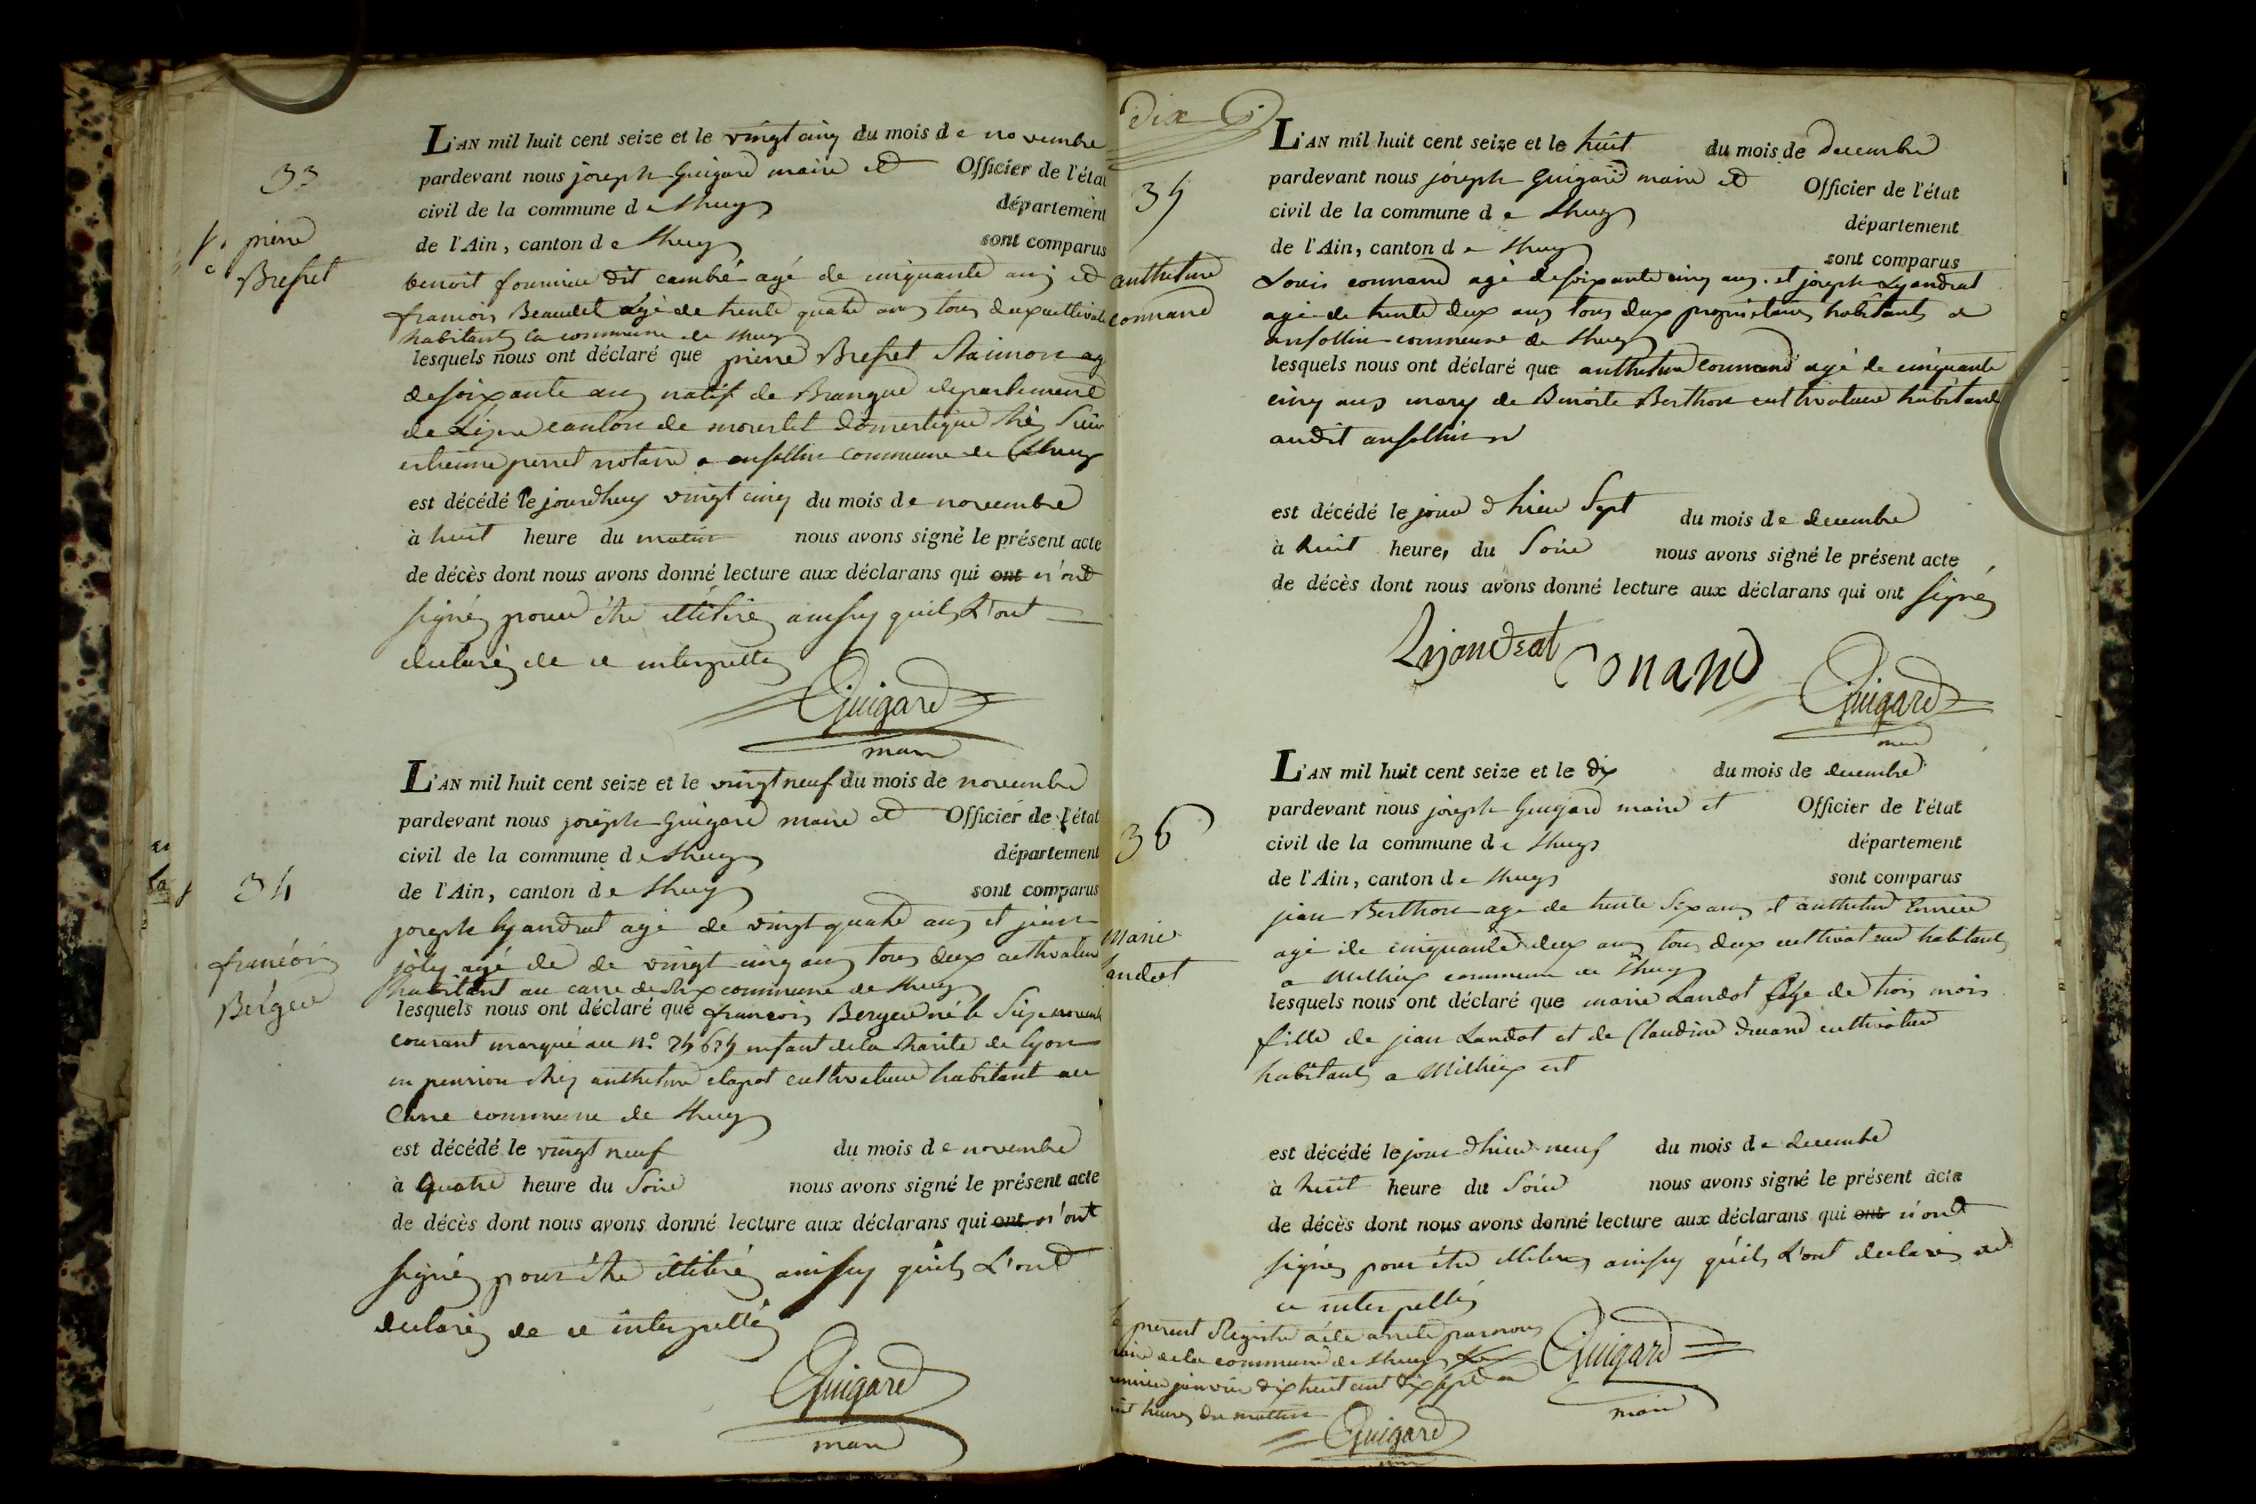 33
pierre
Bressret
L'AN mil huit cent seize et le vingt cinq du mois de novembre
pardevant nous joseph Guigard maire et Officier de l'état
civil de la commune de Lhuys département
de l'Ain, canton de Lhuys sont comparus
benoit fournier dit cambé agé de cinquante ans et
francois Beaudet agé de trente quatre ans tous deux cultivat
habitants la commune de Lhuys
lesquels nous ont déclaré que pierre Bressret Raimon ag
de soixante ans natif de Brangue departement
de Lizere canton de morestel domestique chez Sieur
estienne perret notaire a ansollin commune de Lhuys
est décédé le jourdhuy vingt cinq du mois de novembre
à huit heure du matin nous avons signé le présent acte
de décès dont nous avons donné lecture aux déclarans qui ont n'ont
signés pour être illitirés ainssy quils L'ont
declarés de ce interpellés
Guigard
maire
34
francois
Berger
L'AN mil huit cent seize et le vingt neuf du mois de novembre
pardevant nous joseph Guigard maire et Officier de l'état
civil de la commune de Lhuys département
de l'Ain, canton de Lhuys sont comparus
joseph Lyandrat agé de vingt quatre ans et jean
joly agé de de vingt cinq ans tous deux cultivateur
habitant au carre de commune de Lhuys
lesquels nous ont déclaré que francois Berger né le Six novemb
courant marqué au n.o enfant de la charite de lyon
en pension chez anthelme clapot cultivateur habitant au
Carre commune de Lhuys
est décédé le vingt neuf du mois de novembre
à quatre heure du Soir nous avons signé le présent acte
de décès dont nous avons donné lecture aux déclarans qui ont n'ont
signés pour être illitirés ainssy quils L'ont
declarés de ce interpellés
Guigard
maire
dix
35
anthelme
connand
L'AN mil huit cent seize et le huit du mois de decembre
pardevant nous joseph Guigard maire et Officier de l'état
civil de la commune de Lhuys département
de l'Ain, canton de Lhuys sont comparus
Louis connand agé de soixante cinq ans et joseph Lyandrat
agé de trente deux ans tous deux proprietaires habitants a
ansollin commune de Lhuys
lesquels nous ont déclaré que anthelme connand agé de cinquante
cinq ans mary de Benoite Berthon cultivateur habitant
audit ansollin
est décédé le jour d hier Sept du mois de decembre
à huit heure, du Soir nous avons signé le présent acte
de décès dont nous avons donné lecture aux déclarans qui ont signés
Lyandrat Conand
Guigard
maire
36
Marie
Landot
L'AN mil huit cent seize et le dix du mois de decembre
pardevant nous joseph Guigard maire et Officier de l'état
civil de la commune de Lhuys département
de l'Ain, canton de Lhuys sont comparus
jean Berthon agé de trente Six ans et anthelme
agé de cinquante deux ans tous deux cultivateur habitants
a Millieux commune de Lhuys
lesquels nous ont déclaré que marie Landot agé de trois mois
fille de jean Landot et de Claudine durand cultivateur
habitants a Millieux est
est décédé le jour d hier neuf du mois de decembre
à huit heure du Soir nous avons signé le présent acte
de décès dont nous avons donné lecture aux déclarans qui ont n'ont
signés pour être illitirés ainssy quils L'ont declarés de
ce interpellés
Guigard
maire
present Registre a été arreté par nous
maire de la commune de Lhuys
janvier dix huit cent dix sept a
heures du matin
Guigard